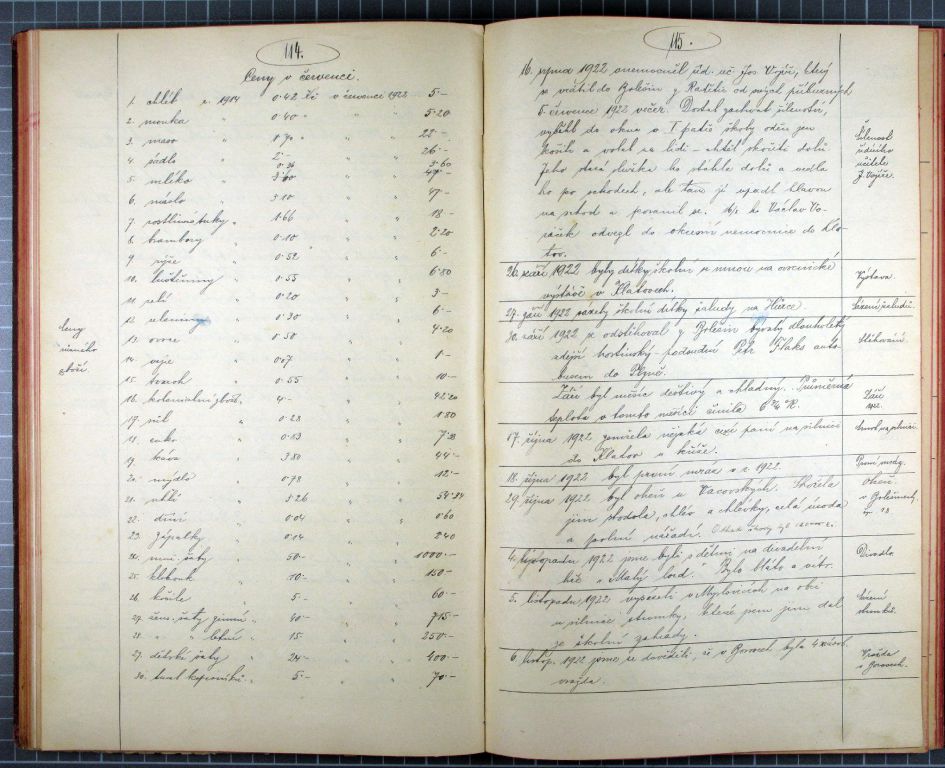 114.
Ceny v červenci.
1. chléb r. 1914 0·42 Kč v červenci 1922 5·–
2. mouka " 0·40 " " " 5·20
3. maso " 1·70 " " 22·–
4. sádlo " 2·– " " 26·–
5. mléko " " "
6. máslo " 3·10 " " 47·–
7. rostlinné tuky " 1·66 " " 18·–
8. brambory " 0·10 " " 2·20
9. rýže " 0·52 " " 6·–
10. luštěniny " 0·55 " " 6·80
11. zelí " 0·20 " " 3·–
12. zelenina " 0·30 " " 6·–
13. ovoce " 1·50 " " 4·20
14. vejce " 0·07 " " 1·–
15. tvaroh " 0·55 " " 10·–
16. koloniální zboží " 4·– " " 42·20
17. sůl " 0·28 " " 1·80
18. cukr " 0·83 " "
19. káva " 3·80 " " 44·–
20. mýdlo " 0·78 " " 12·–
21. uhlí " 5·26 " " 54·84
22. dříví " 0·04 " " 0·60
23. zápalky " 0·04 " " 2·40
24. muž. šaty " 50·– " " 1000·–
25. klobouk " 10·– " " 150·–
26. košile " 5·– " " 60·–
27. žen. šaty zimní " 40·– " " 715·–
28. " " letní " 15 " " 250·–
29. dětské šaty " 24·– " " 400·–
30. tucet kapesníků " 5·– " " 70·–
Ceny
různého
zboží.
115.
16. října 1922 onemocněl úd. uč. Jos. Vojíř, který
se vrátil do Bolešin z Radětic od svých příbuzných
5. července 1922 večer. Dostal záchvat šílenství,
vyběhl do okna v I. patře školy oděn jen
košilí a volal na lidi – chtěl skočiti dolů
Jeho stará služka ho stáhla dolů a vedla
ho po schodech, ale tam již upadl hlavou
na schod a poranil se. ho Václav Vo-
ráček odvezl do okresní nemocnice do Kla-
tov.
Šílenost
řídícího
učitele
J. Vojíře.
26. září 1922 byly dítky školní se mnou na ovocnické
výstavě v Klatovech.
Výstava.
27. září 1922 sázely školní dítky žaludy na Hůrce.
Sázení žaludů.
30. září 1922 se odstěhoval z Bolešin bývalý dlouholetý
zdejší hostinský – podsední Petr Flaks auto-
busem do Plzně.
Stěhování.
Září byl měsíc deštivý a chladný. Průměrná
teplota v tomto měsíci činila 6 ¾ °R.
Září
1922.
17. října 1922 zemřela nějaká cizí paní na silnici
do Klatov u kříže.
Smrt na silnici.
18. října 1922 byl první mráz v r. 1922.
První mráz.
29. října 1922 byl oheň u Vacovských. Shořela
jim stodola, chlév a chlívky, celá úroda
a polní nářadí.
Oheň
v Bolešinech,
čp. 18.
4. listopadu 1922 jsme byli s dětmi na divadelní
hře "Malý lord". Bylo bláto a vítr.
Divadlo.
5. listopadu 1922 vysázeli v Myslovicích na obci
u silnice stromky, které jsem jim dal
ze školní zahrady.
Sázení
stromků.
6. listop. 1922 jsme se dověděli, že v Borovech byla
vražda.
Vražda
v Borovech.